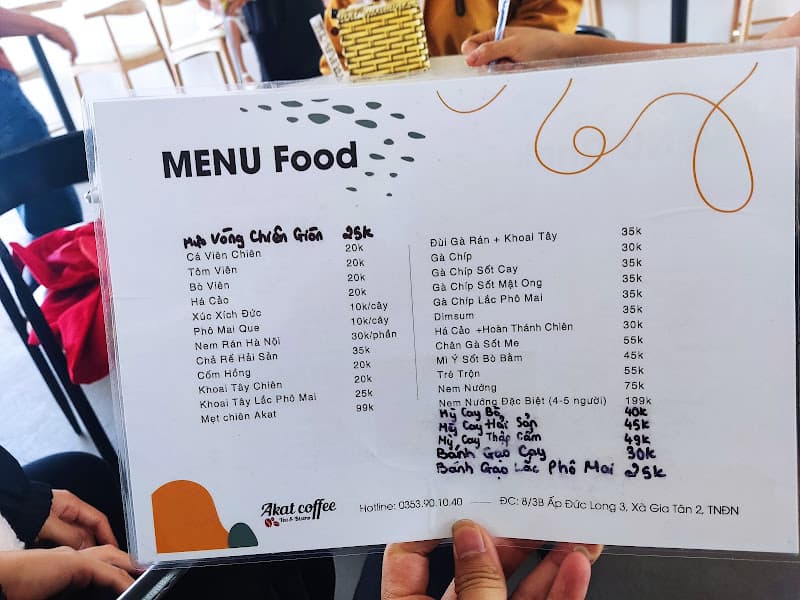 MENU Food
Mực Vòng Chiên Giòn 25k
Cá Viên Chiên 20k
Tôm Viên 20k
Bò Viên 20k
Há Cảo 20k
Xúc Xích Đức 10k/cây
Phô Mai Que 10k/cây
Nem Rán Hà Nội 30k/phần
Chả Rế Hải Sản 35k
Cốm Hồng 20k
Khoai Tây Chiên 20k
Khoai Tây Lắc Phô Mai 25k
Mẹt chiên Akat 99k
Đùi Gà Rán + Khoai Tây 35k
Gà Chíp 30k
Gà Chíp Sốt Cay 35k
Gà Chíp Sốt Mật Ong 35k
Gà Chíp Lắc Phô Mai 35k
Dimsum 35k
Há Cảo +Hoàn Thánh Chiên 30k
Chân Gà Sốt Me 55k
Mì Ý Sốt Bò Bằm 45k
Tré Trộn 55k
Nem Nướng 75k
Nem Nướng Đặc Biệt (4-5 người) 199k
Mỳ Cay Bò 40k
Mỳ Cay Hải Sản 45k
Mỳ Cay Thập Cẩm 49k
Bánh Gạo Cay 30k
Bánh Gạo Lắc Phô Mai 25k
Akat coffee
Tea & Bistro
Hotline: 0353.90.10.40 ĐC: 8/3B Ấp Đức Long 3, Xã Gia Tân 2, TNĐN